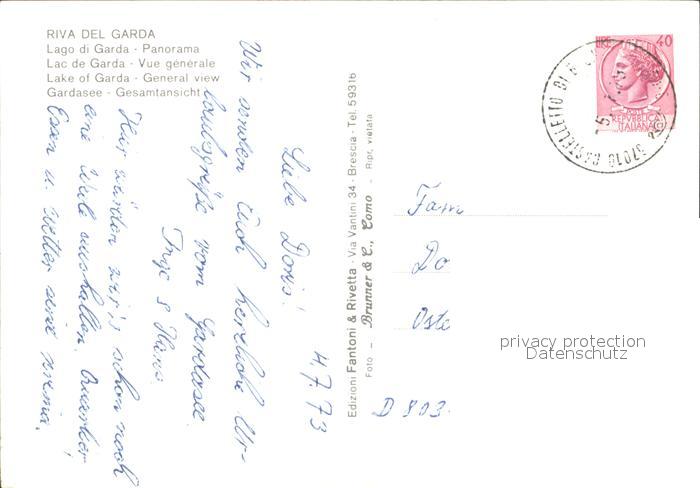 RIVA DEL GARDA
Lago di Garda - Panorama
Lac de Garda - Vue générale
Lake of Garda - General view
Gardasee - Gesamtansicht
4.7.73
Liebe Doris!
Wir senden Euch herzliche Ur-
laubsgrüße vom Gardasee.
Inge & Hans
Hier würden wir's schon noch
eine Weile aushalten. Quartier
Essen u. Wetter sind prima.
Edizioni Fantoni & Rivetta - Via Vantini 34 - Brescia - Tel. 59316
Foto - Brunner & C., Como - Ripr. vietata
LIRE 40
REPVBBLICA
ITALIANA
37010 CASTELLETTO DI B
Fam
Do
Oste
D 803
privacy protection
Datenschutz